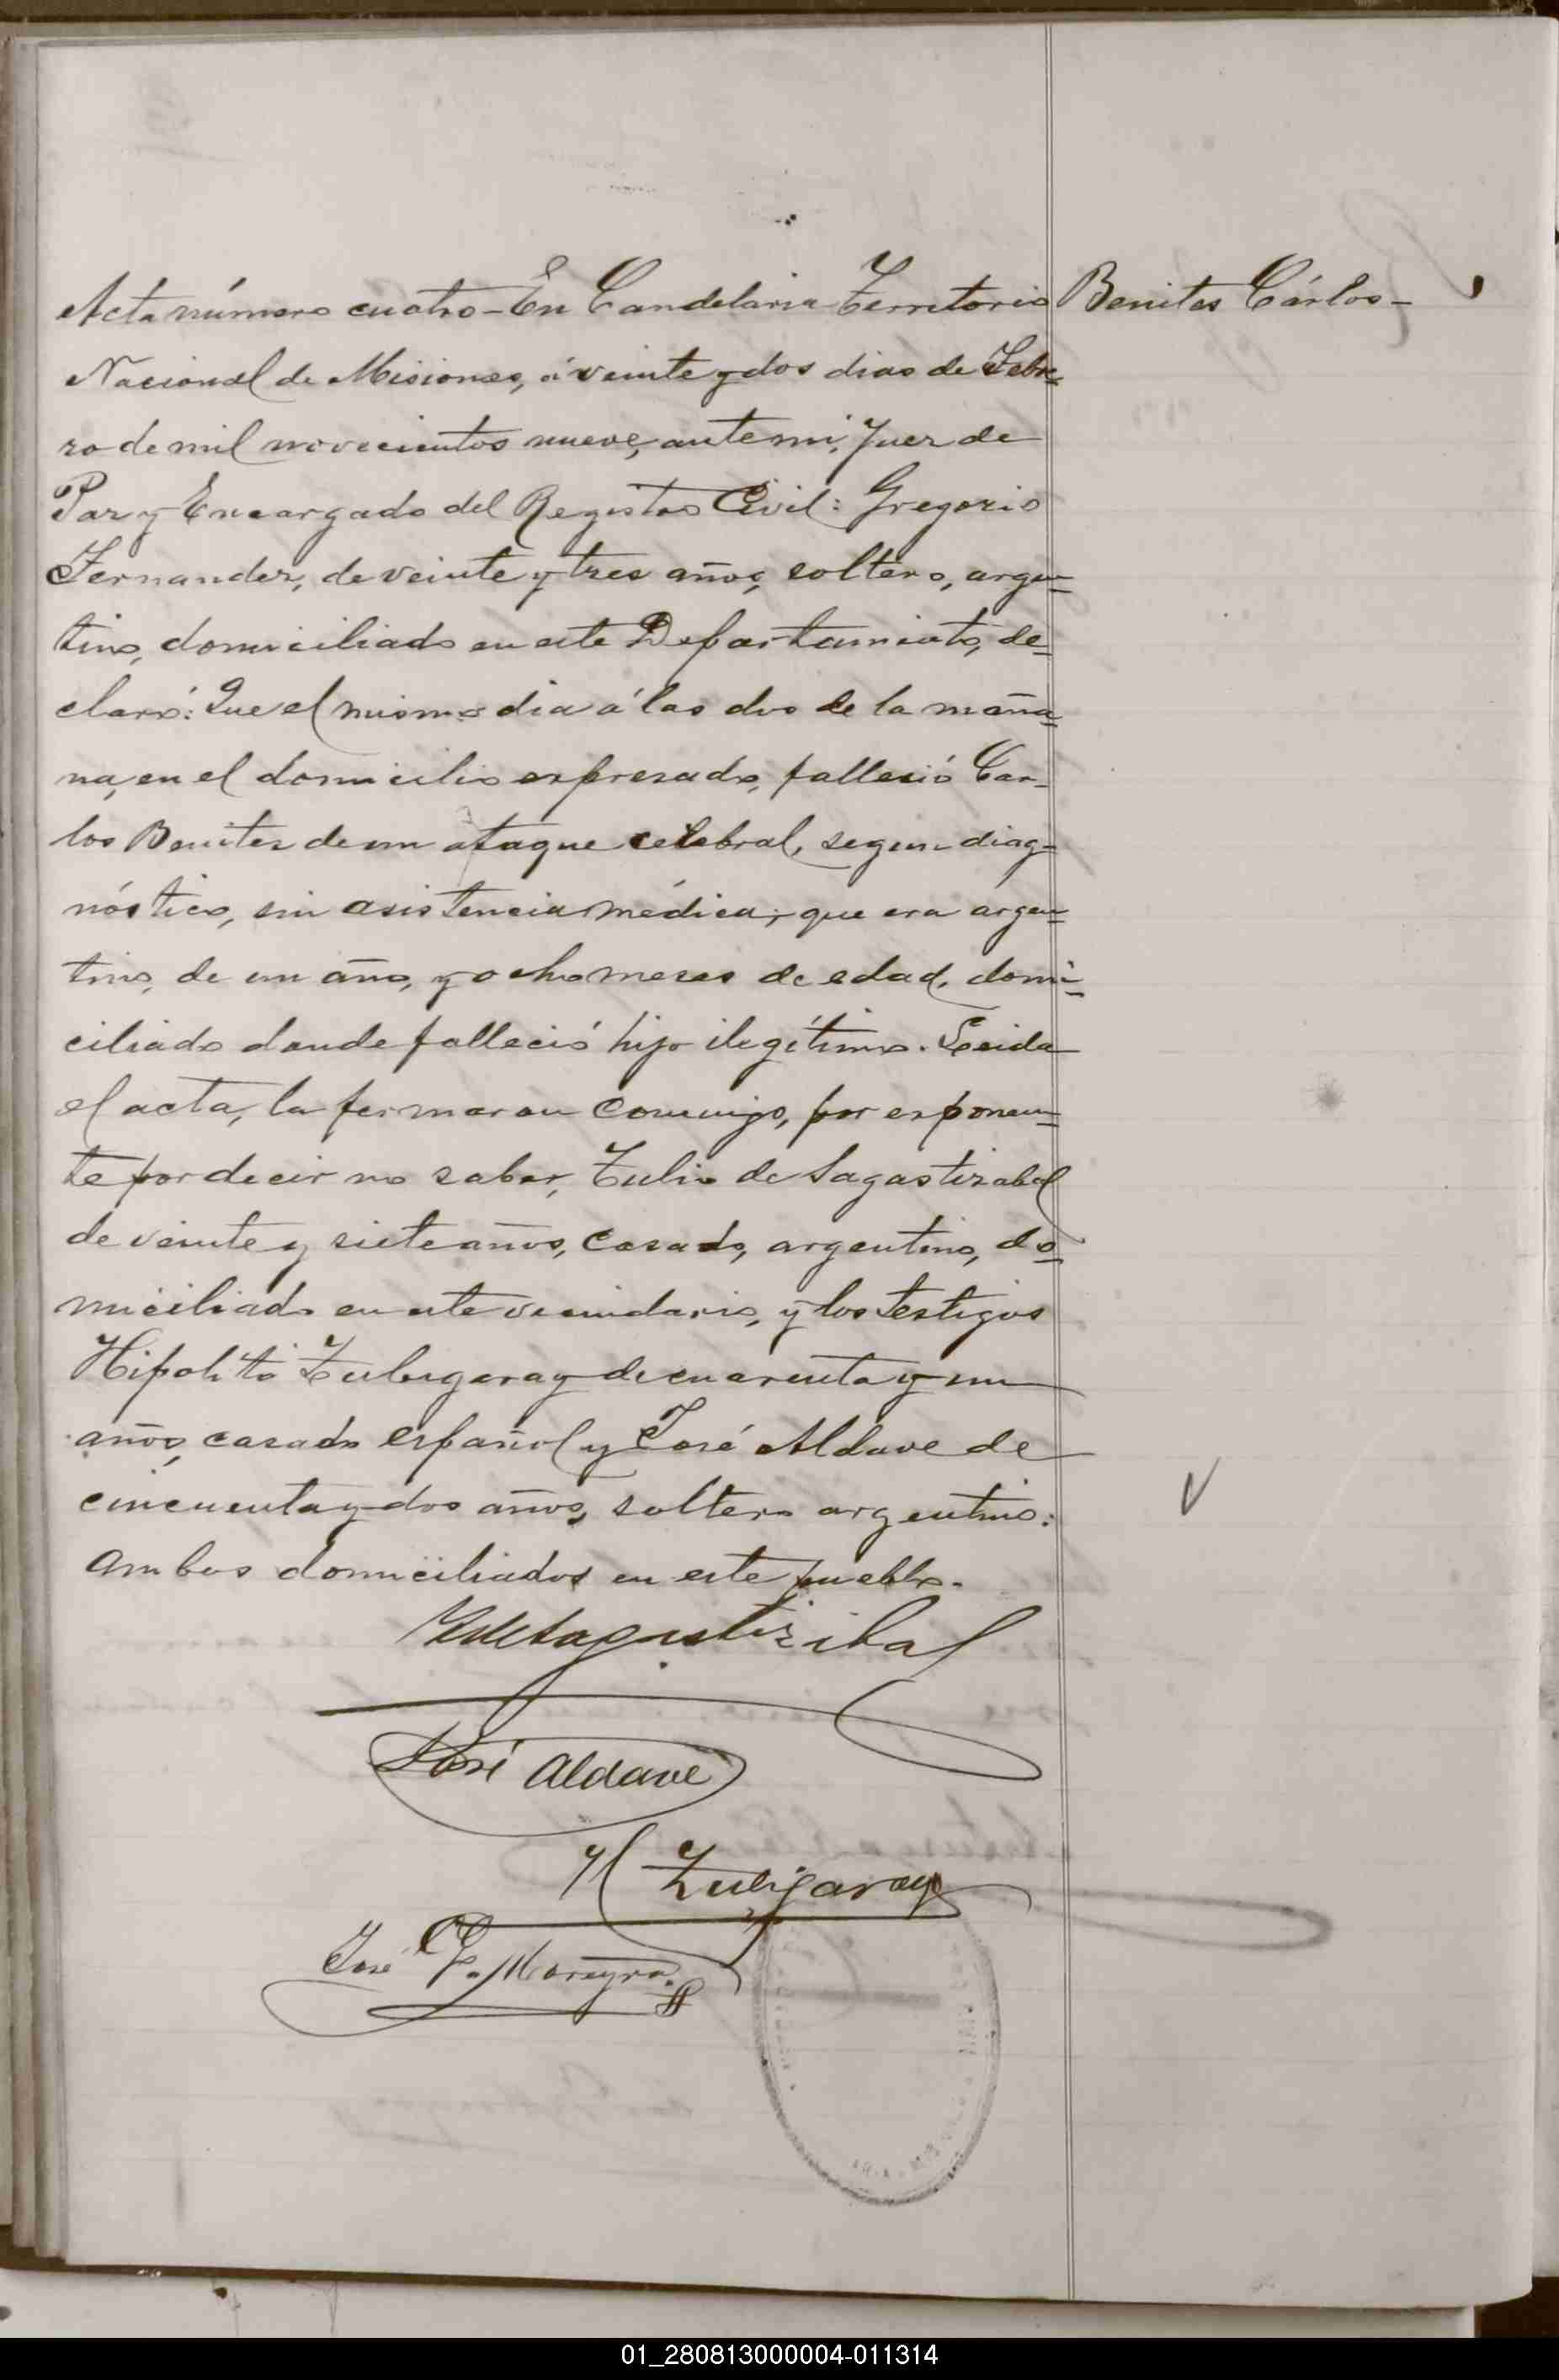 Acta número cuatro - En Candelaria Territorio
Benites Cárlos -
Nacional de Misiones, á veinte y dos dias de Febre=
ro de mil novecientos nueve, ante mi, Juez de
Paz y Encargado del Registro Civil: Gregorio
Fernandez, de veinte y tres años, soltero, argen=
tino, domiciliado en este Departamiento, de=
claró: Que el mismo dia á las dos de la maña=
na, en el domicilio espresado, falleció Car=
los Benites de un ataque celebral, segun diag=
nóstico, sin asistencia médica; que era argen=
tino, de un año, y ocho meses de edad, domi=
ciliado donde falleció hijo ilegítimo. Leida
el acta, la firmaron conmigo, por exponen=
te por decir no saber, Tulio de Sagastizabal
de veinte y siete años, casado, argentino, do=
miciliado en este vecindario, y los testigos
Hipolito Zubigaray de cuarenta y un
años, casado español y José Aldave de
cincuenta y dos años, soltero argentino:
ambos domiciliados en este pueblo.
José Aldave
H Zubigaray
José Moreyra
01_280813000004-011314